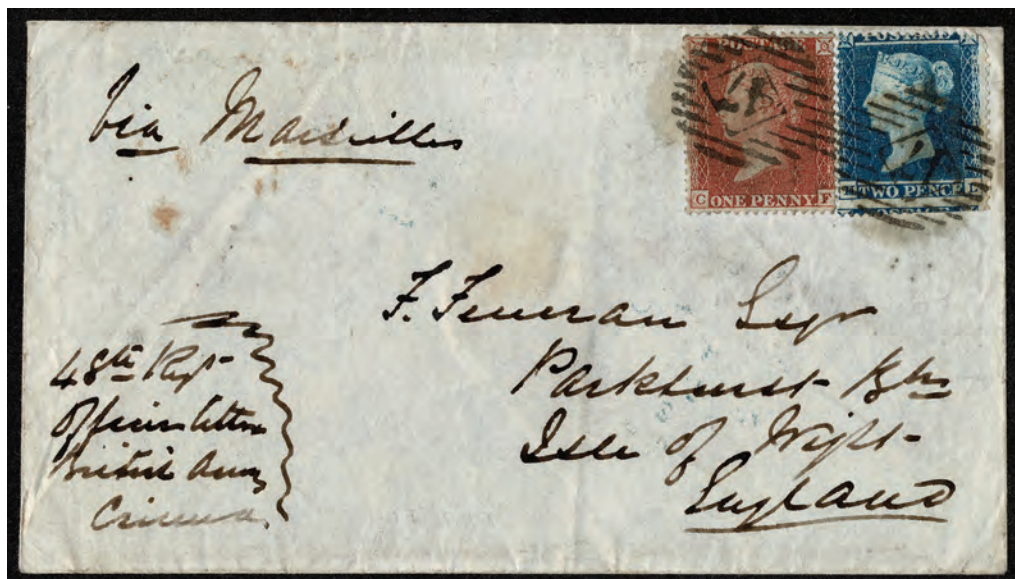 Via Marseilles
POSTAGE
C ONE PENNY F
POSTAGE
TWO PENCE
F. Esqr
Parkhurst Bks
Isle of Wight
England
48th Regt
Officers letter
British Army
Crimea